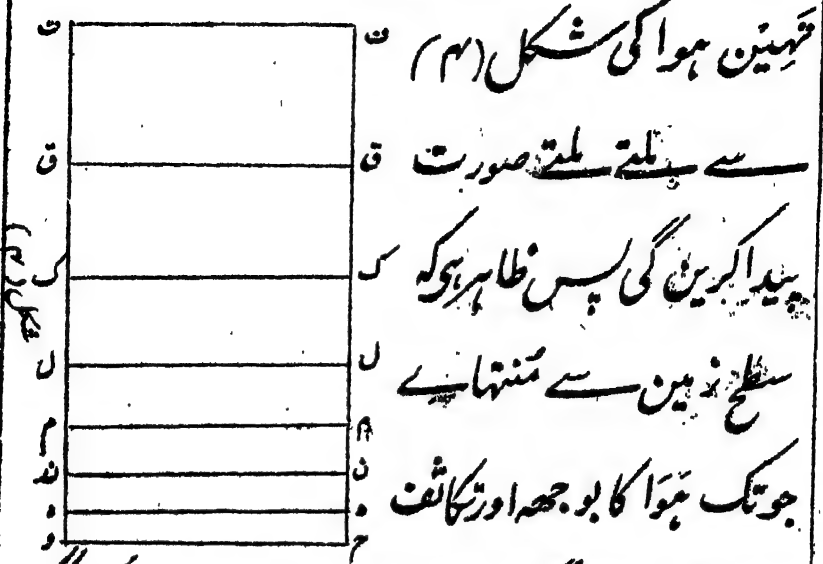 تہین ہوا کی شکل (۳)
سے ملتے ملتے صورت
پیدا کرین گی پس ظاہر ہی کہ
سطح زمین سے مُنتہاے
جو تک ہَوَا کا بوجھہ اور تکاثف
ت ت
ق ق
ک ک
ل ل
م م
ن ن
ہ ہ
ح و